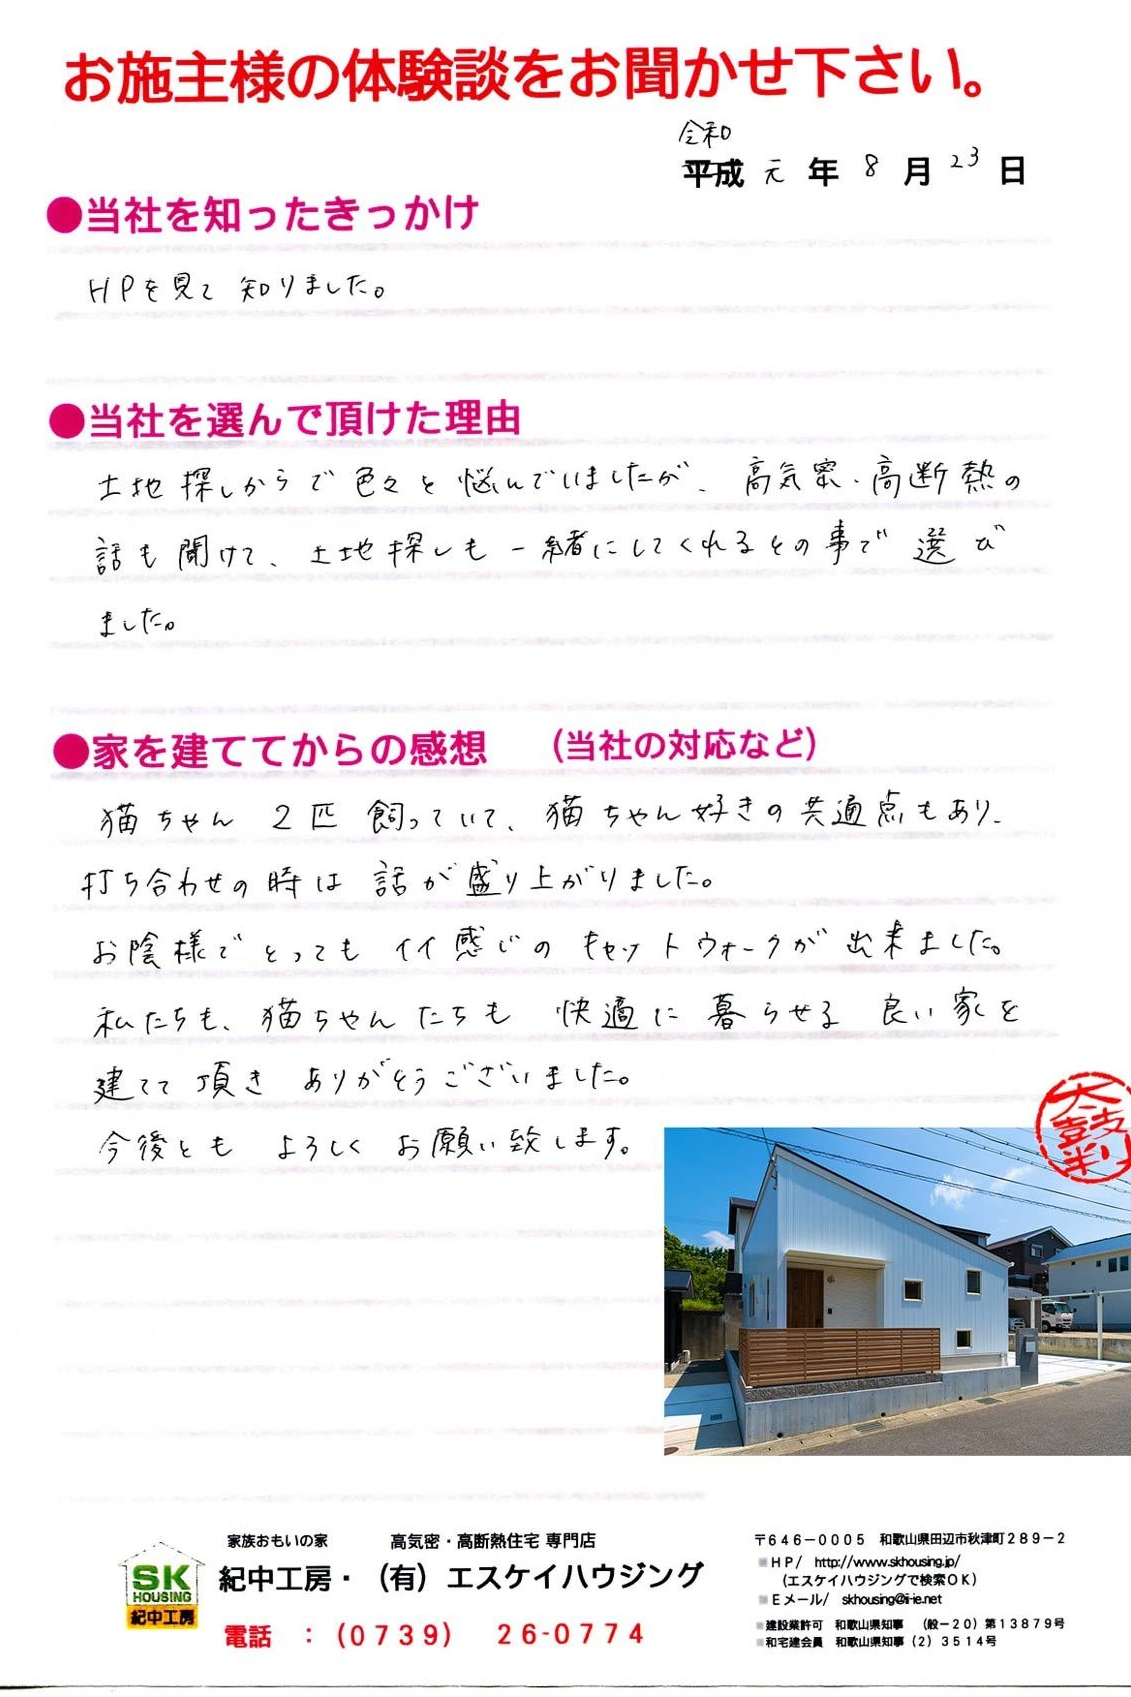 お施主様の体験談をお聞かせ下さい。
令和
平成 元 年 8 月 23 日
●当社を知ったきっかけ
HPを見て 知りました。
●当社を選んで頂けた理由
土地探しからで色々と悩んでいましたが、高気密・高断熱の
話も聞けて、土地探しも一緒にしてくれるとの事で選び
ました。
●家を建ててからの感想 (当社の対応など)
猫ちゃん 2匹 飼っていて、猫ちゃん好きの共通点もあり、
打ち合わせの時は 話が盛り上がりました。
お陰様で とっても イイ感じの キャットウォークが 出来ました。
私たちも、猫ちゃんたちも 快適に 暮らせる 良い家を
建てて 頂き ありがとうございました。
今後とも よろしく お願い致します。
太鼓判
家族おもいの家 高気密・高断熱住宅 専門店
SK
HOUSING
紀中工房
紀中工房・(有)エスケイハウジング
電話 :(0739) 26-0774
〒646-0005 和歌山県田辺市秋津町289-2
■HP/ http://www.skhousing.jp/
(エスケイハウジングで検索OK)
■Eメール/ skhousing@i-ie.net
■建設業許可 和歌山県知事 (般-20)第13879号
■和宅建会員 和歌山県知事(2)3514号